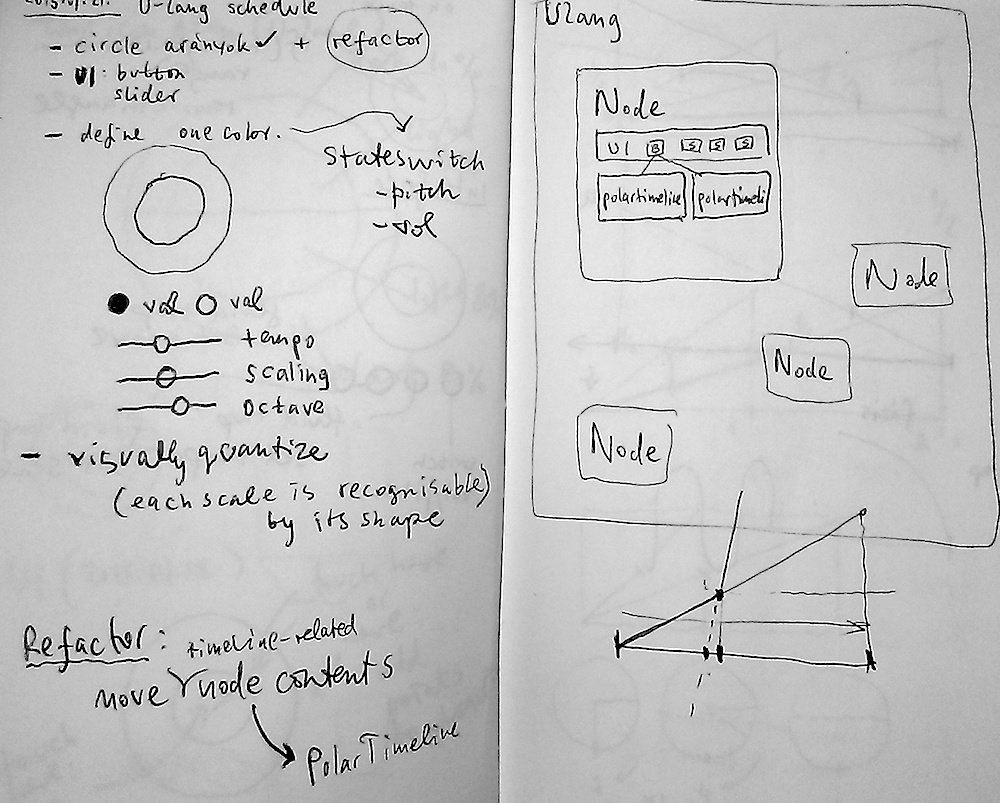 U-lang schedule
- circle arányok ✓ + refactor
- UI: button
slider
- define one color.
Stateswitch
- pitch
- vol
val val
tempo
scaling
octave
- visually quantize
(each scale is recognisable)
by its shape
Refactor: timeline-related
move node contents
PolarTimeline
Ulang
Node
UI B S S S
polartimeline polartimeli
Node
Node
Node